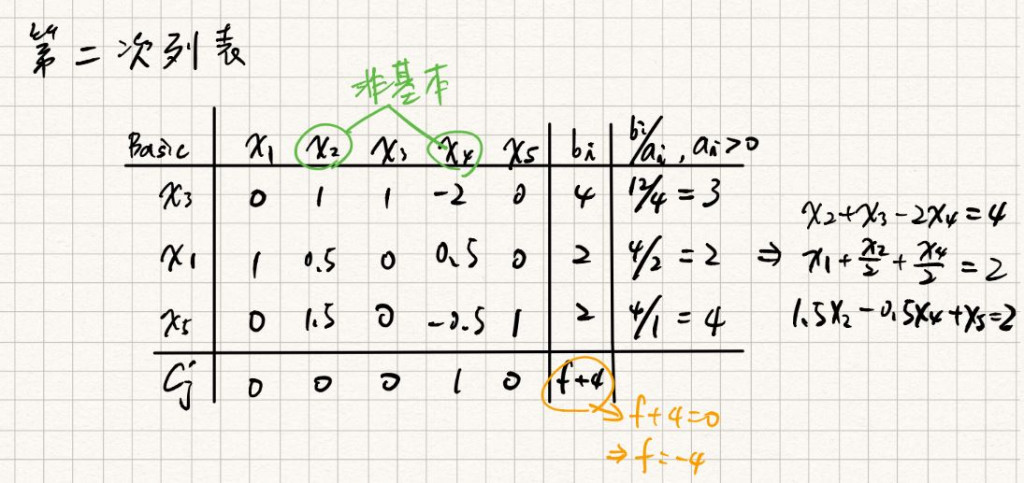 第二次列表
非基本
Basic x₁ x₂ x₃ x₄ x₅ bᵢ bᵢ/aᵢ, aᵢ>0
x₃ 0 1 1 -2 0 4 12/4 = 3
x₁ 1 0.5 0 0.5 0 2 4/2 = 2
x₅ 0 1.5 0 -0.5 1 2 4/1 = 4
Cⱼ 0 0 0 1 0 f+4
x₂+x₃-2x₄=4
⇒ x₁+x₂/2+x₄/2=2
1.5x₂-0.5x₄+x₅=2
→ f+4=0
⇒ f=-4